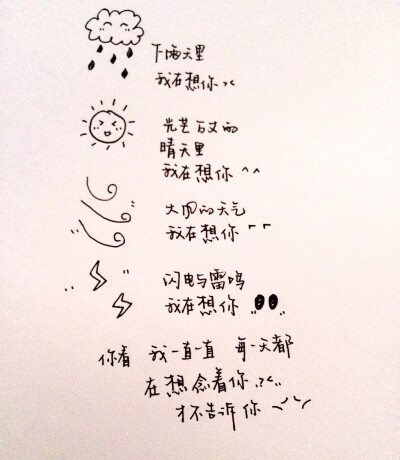 下雨天里
我在想你
光芒万丈的
晴天里
我在想你 ^^
大风的天气
我在想你
闪电与雷鸣
我在想你
你看 我一直一直 每一天都
在想念着你
才不告诉你